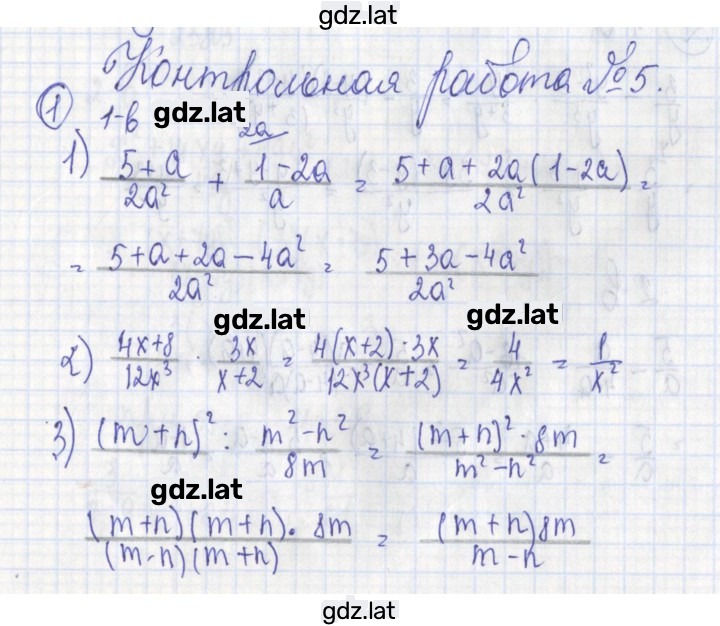 gdz.lat
Контрольная работа №5.
① 1-в gdz.lat
2a
1) (5+a)/(2a²) + (1-2a)/a = (5+a+2a(1-2a))/(2a²) =
= (5+a+2a-4a²)/(2a²) = (5+3a-4a²)/(2a²)
gdz.lat gdz.lat
2) (4x+8)/(12x³) · 3x/(x+2) = (4(x+2)·3x)/(12x³(x+2)) = 4/(4x²) = 1/x²
3) (m+n)² : (m²-n²)/(8m) = ((m+n)²·8m)/(m²-n²) =
gdz.lat
((m+n)(m+n)·8m)/((m-n)(m+n)) = ((m+n)8m)/(m-n)
gdz.lat